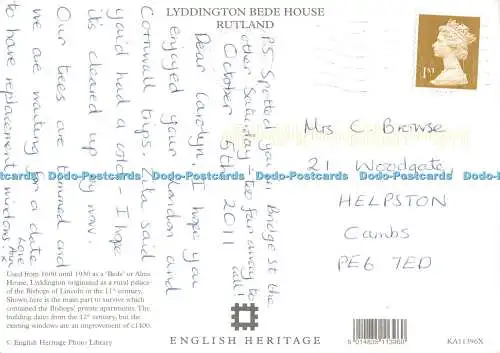 LYDDINGTON BEDE HOUSE
RUTLAND
1ST
PS Spotted you in Bridge St the
other Saturday - too far away to
call!
October 5th 2011
Dear Carolyn, I hope you
enjoyed your London and
Cornwall trips. Zita said
you'd had a cold - I hope
it's cleared up by now.
Our trees are trimmed and
we are waiting for a date
to have replacement windows!
Love
Mrs C. Browse
21 Woodgate
HELPSTON
Cambs
PE6 7ED
Used from 1600 until 1930 as a 'Bede' or Alms
House, Lyddington originated as a rural palace
of the Bishops of Lincoln in the 11th century.
Shown here is the main part to survive which
contained the Bishops' private apartments. The
building dates from the 12th century, but the
existing windows are an improvement of c1400.
© English Heritage Photo Library
ENGLISH HERITAGE
5 014838 113960
KA11396X
Dodo-Postcards Dodo-Postcards Dodo-Postcards Dodo-Postcards Dodo-Postcards